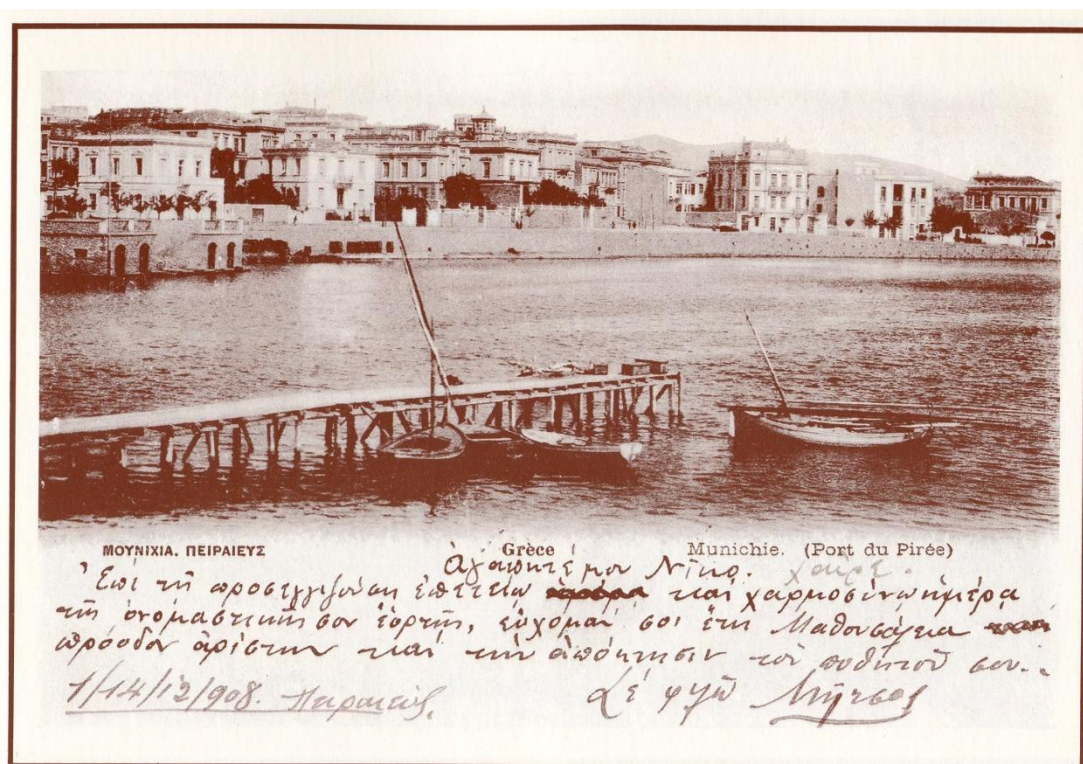 ΜΟΥΝΙΧΙΑ. ΠΕΙΡΑΙΕΥΣ Grèce Munichie. (Port du Pirée)
Ἀγαπητέ μου Νῖκο. χαῖρε.
Ἐπὶ τῇ προσεγγιζούσῃ ἐπετείῳ καὶ χαρμοσύνῳ ἡμέρᾳ
τῆς ὀνομαστικῆς σου ἑορτῆς, εὔχομαί σοι ἔτη Μαθουσάλεια
πρόοδον ἀρίστην καὶ τὴν ἀπόκτησιν τοῦ ποθητοῦ σου..
1/14/12/908. Πειραιεύς. Σὲ φιλῶ Μῆτσος